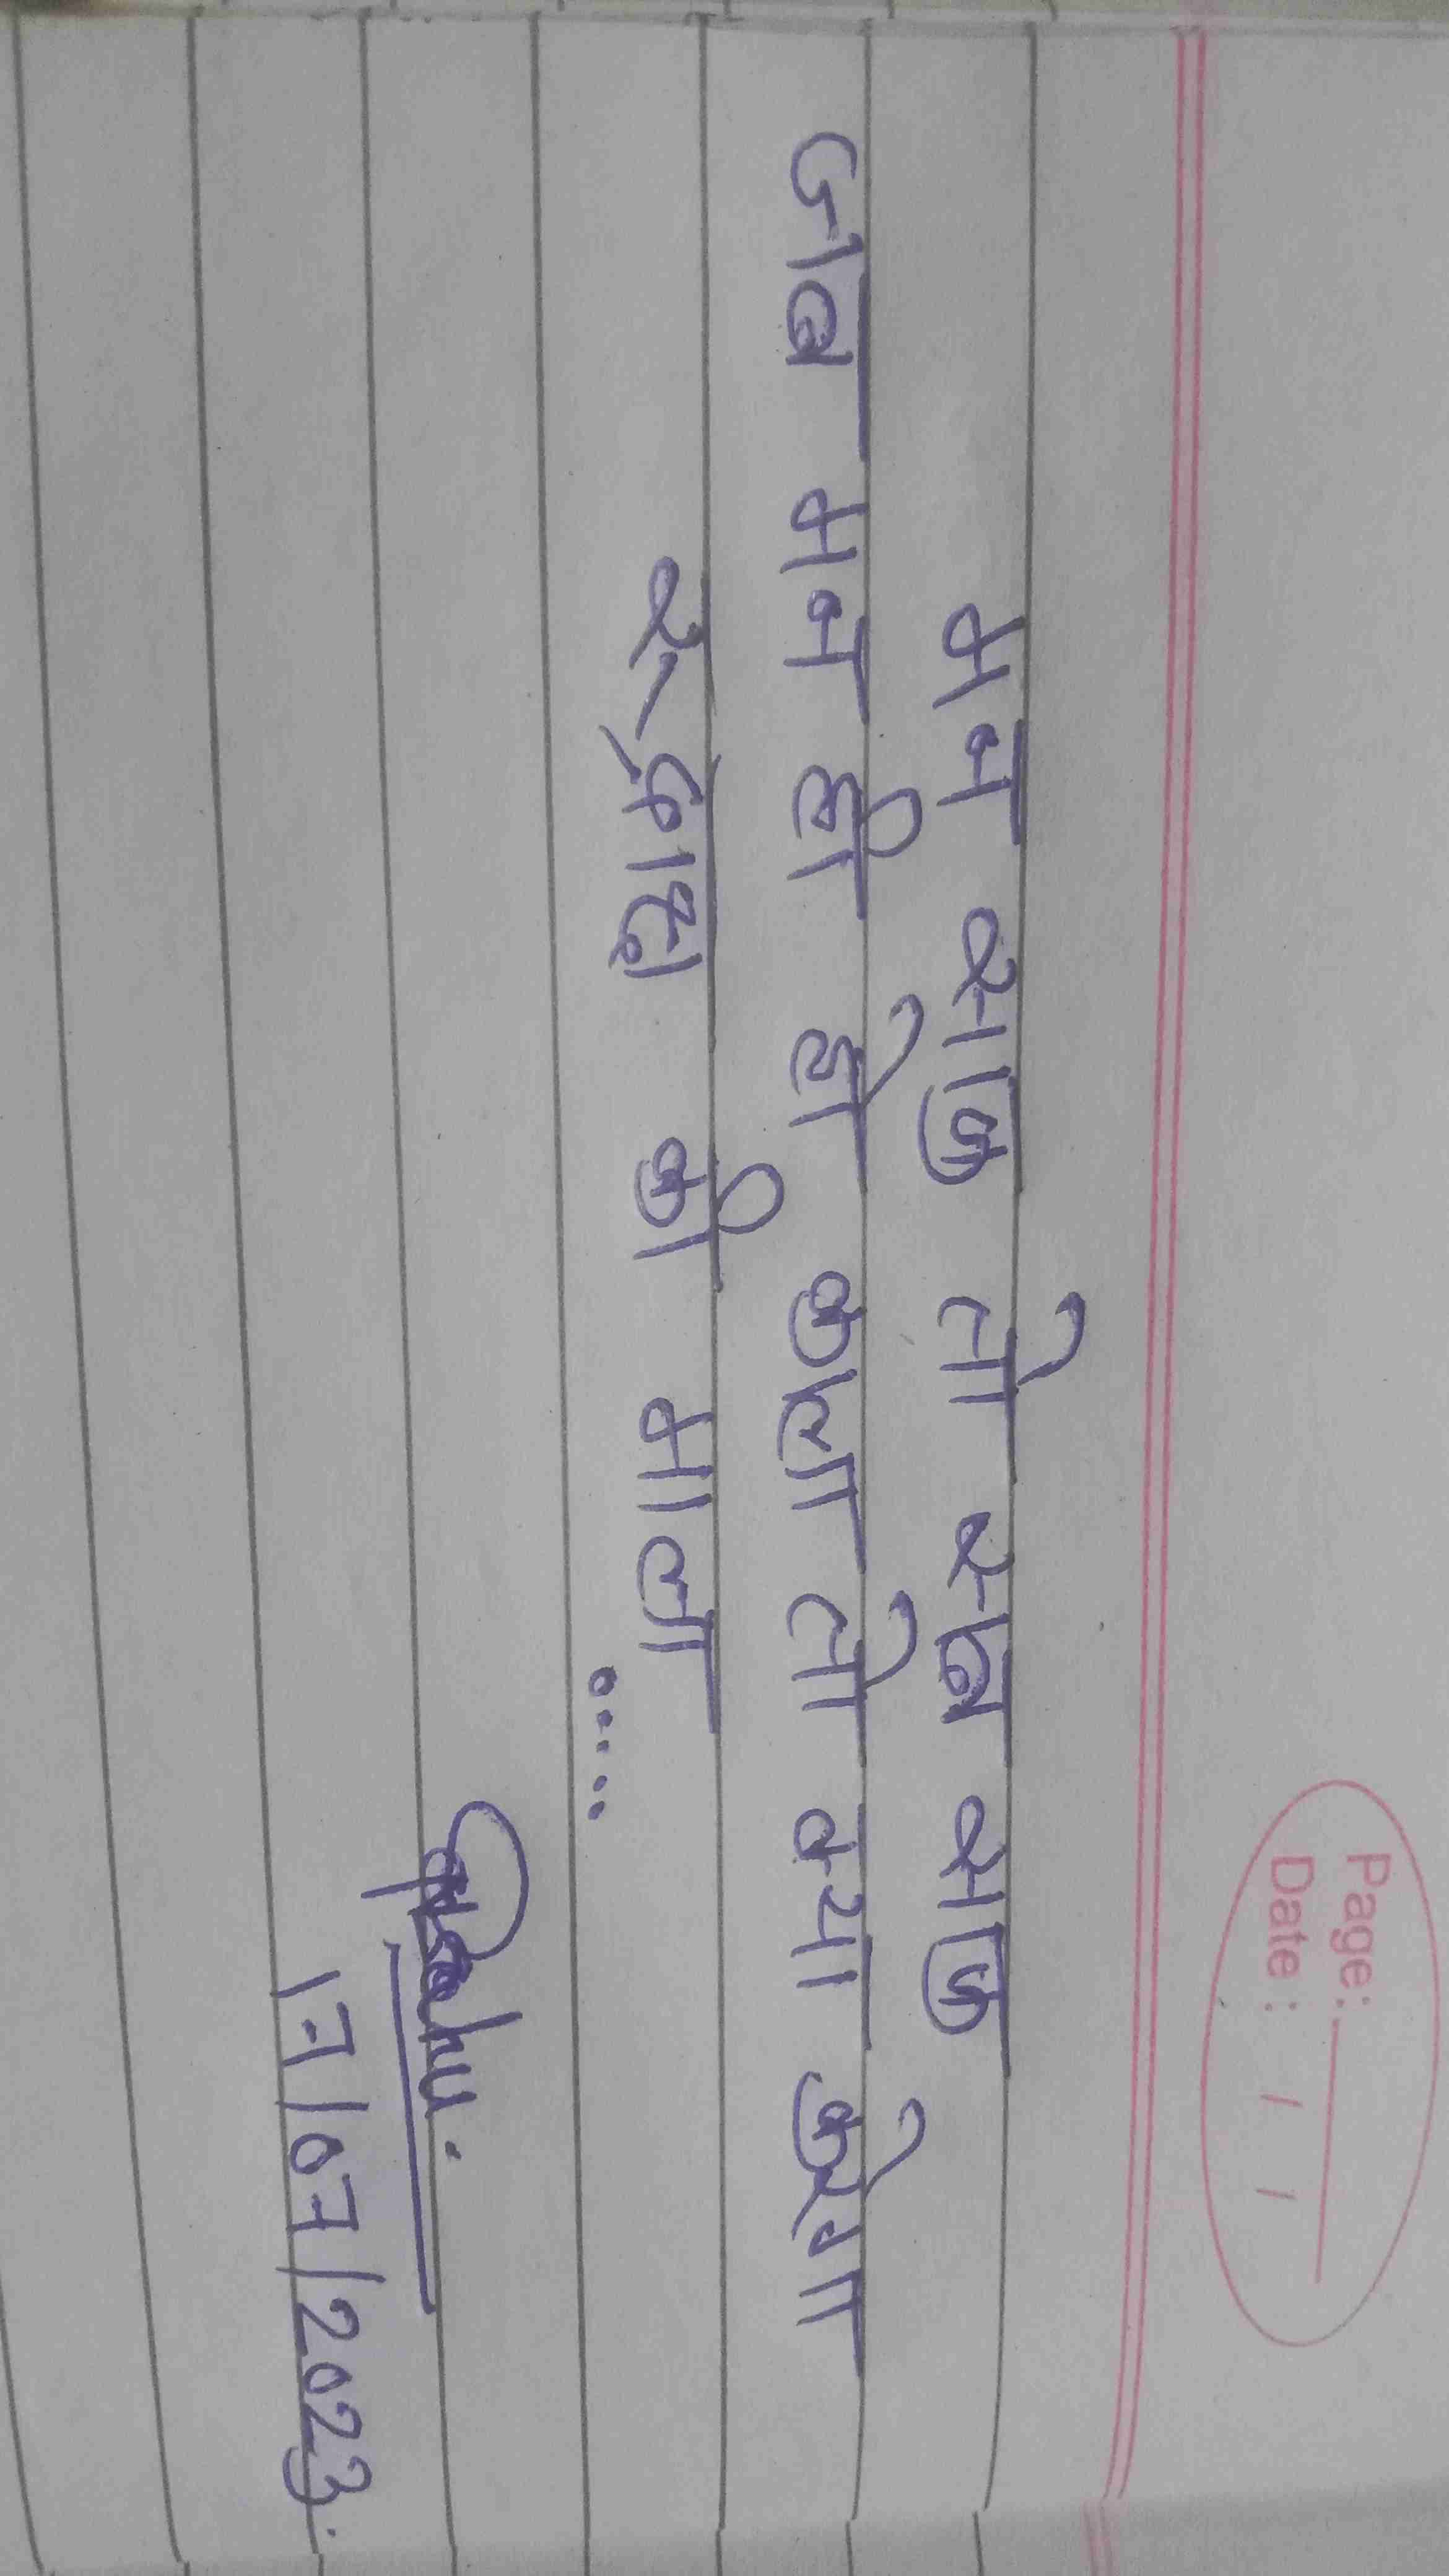 Page:
Date: / /
मन साफ तो सब साफ
जब मन ही हो काला तो क्या करेगा
की माला ....
17/07/2023.